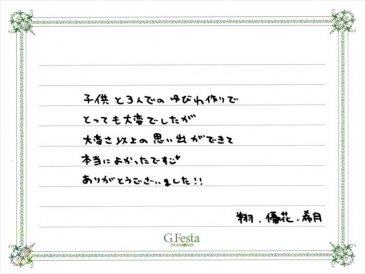 子供と3人でのゆびわ作りで
とっても大変でしたが
大変さ以上の思い出ができて
本当によかったです♡
ありがとうございました!!
翔.優花.希月
G.Festa
DIAMOND